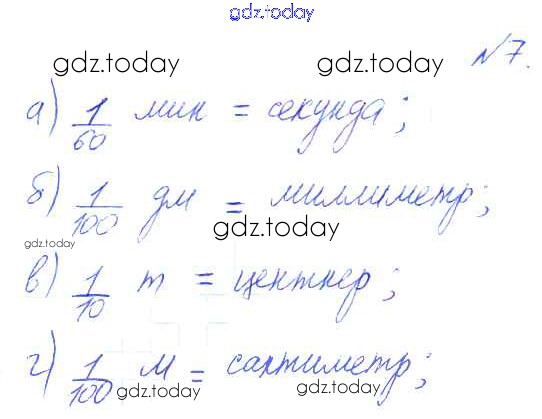 gdz.today
№7.
gdz.today gdz.today
а) 1/60 мин = секунда;
б) 1/100 дм = миллиметр;
gdz.today gdz.today
в) 1/10 т = центнер;
г) 1/100 м = сантиметр;
gdz.today gdz.today